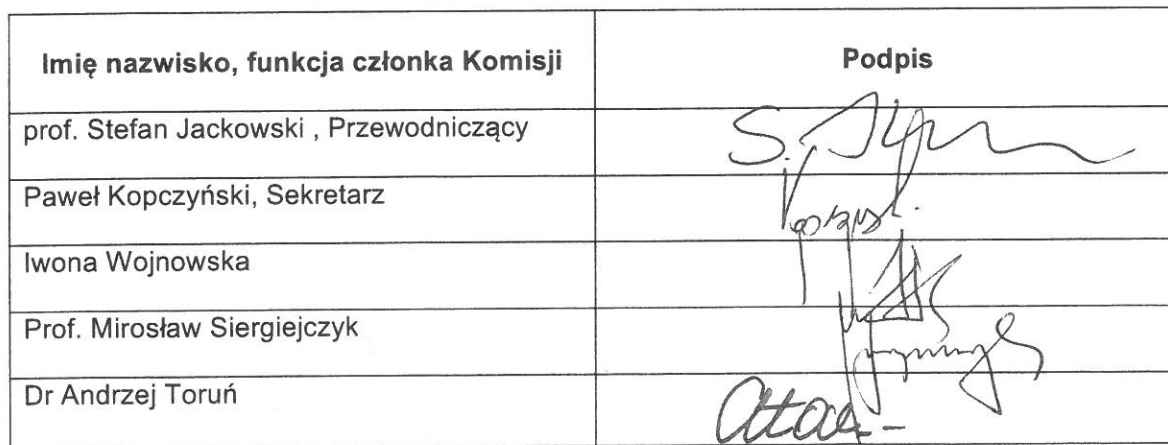 Imię nazwisko, funkcja członka Komisji
Podpis
prof. Stefan Jackowski , Przewodniczący
Paweł Kopczyński, Sekretarz
Iwona Wojnowska
Prof. Mirosław Siergiejczyk
Dr Andrzej Toruń